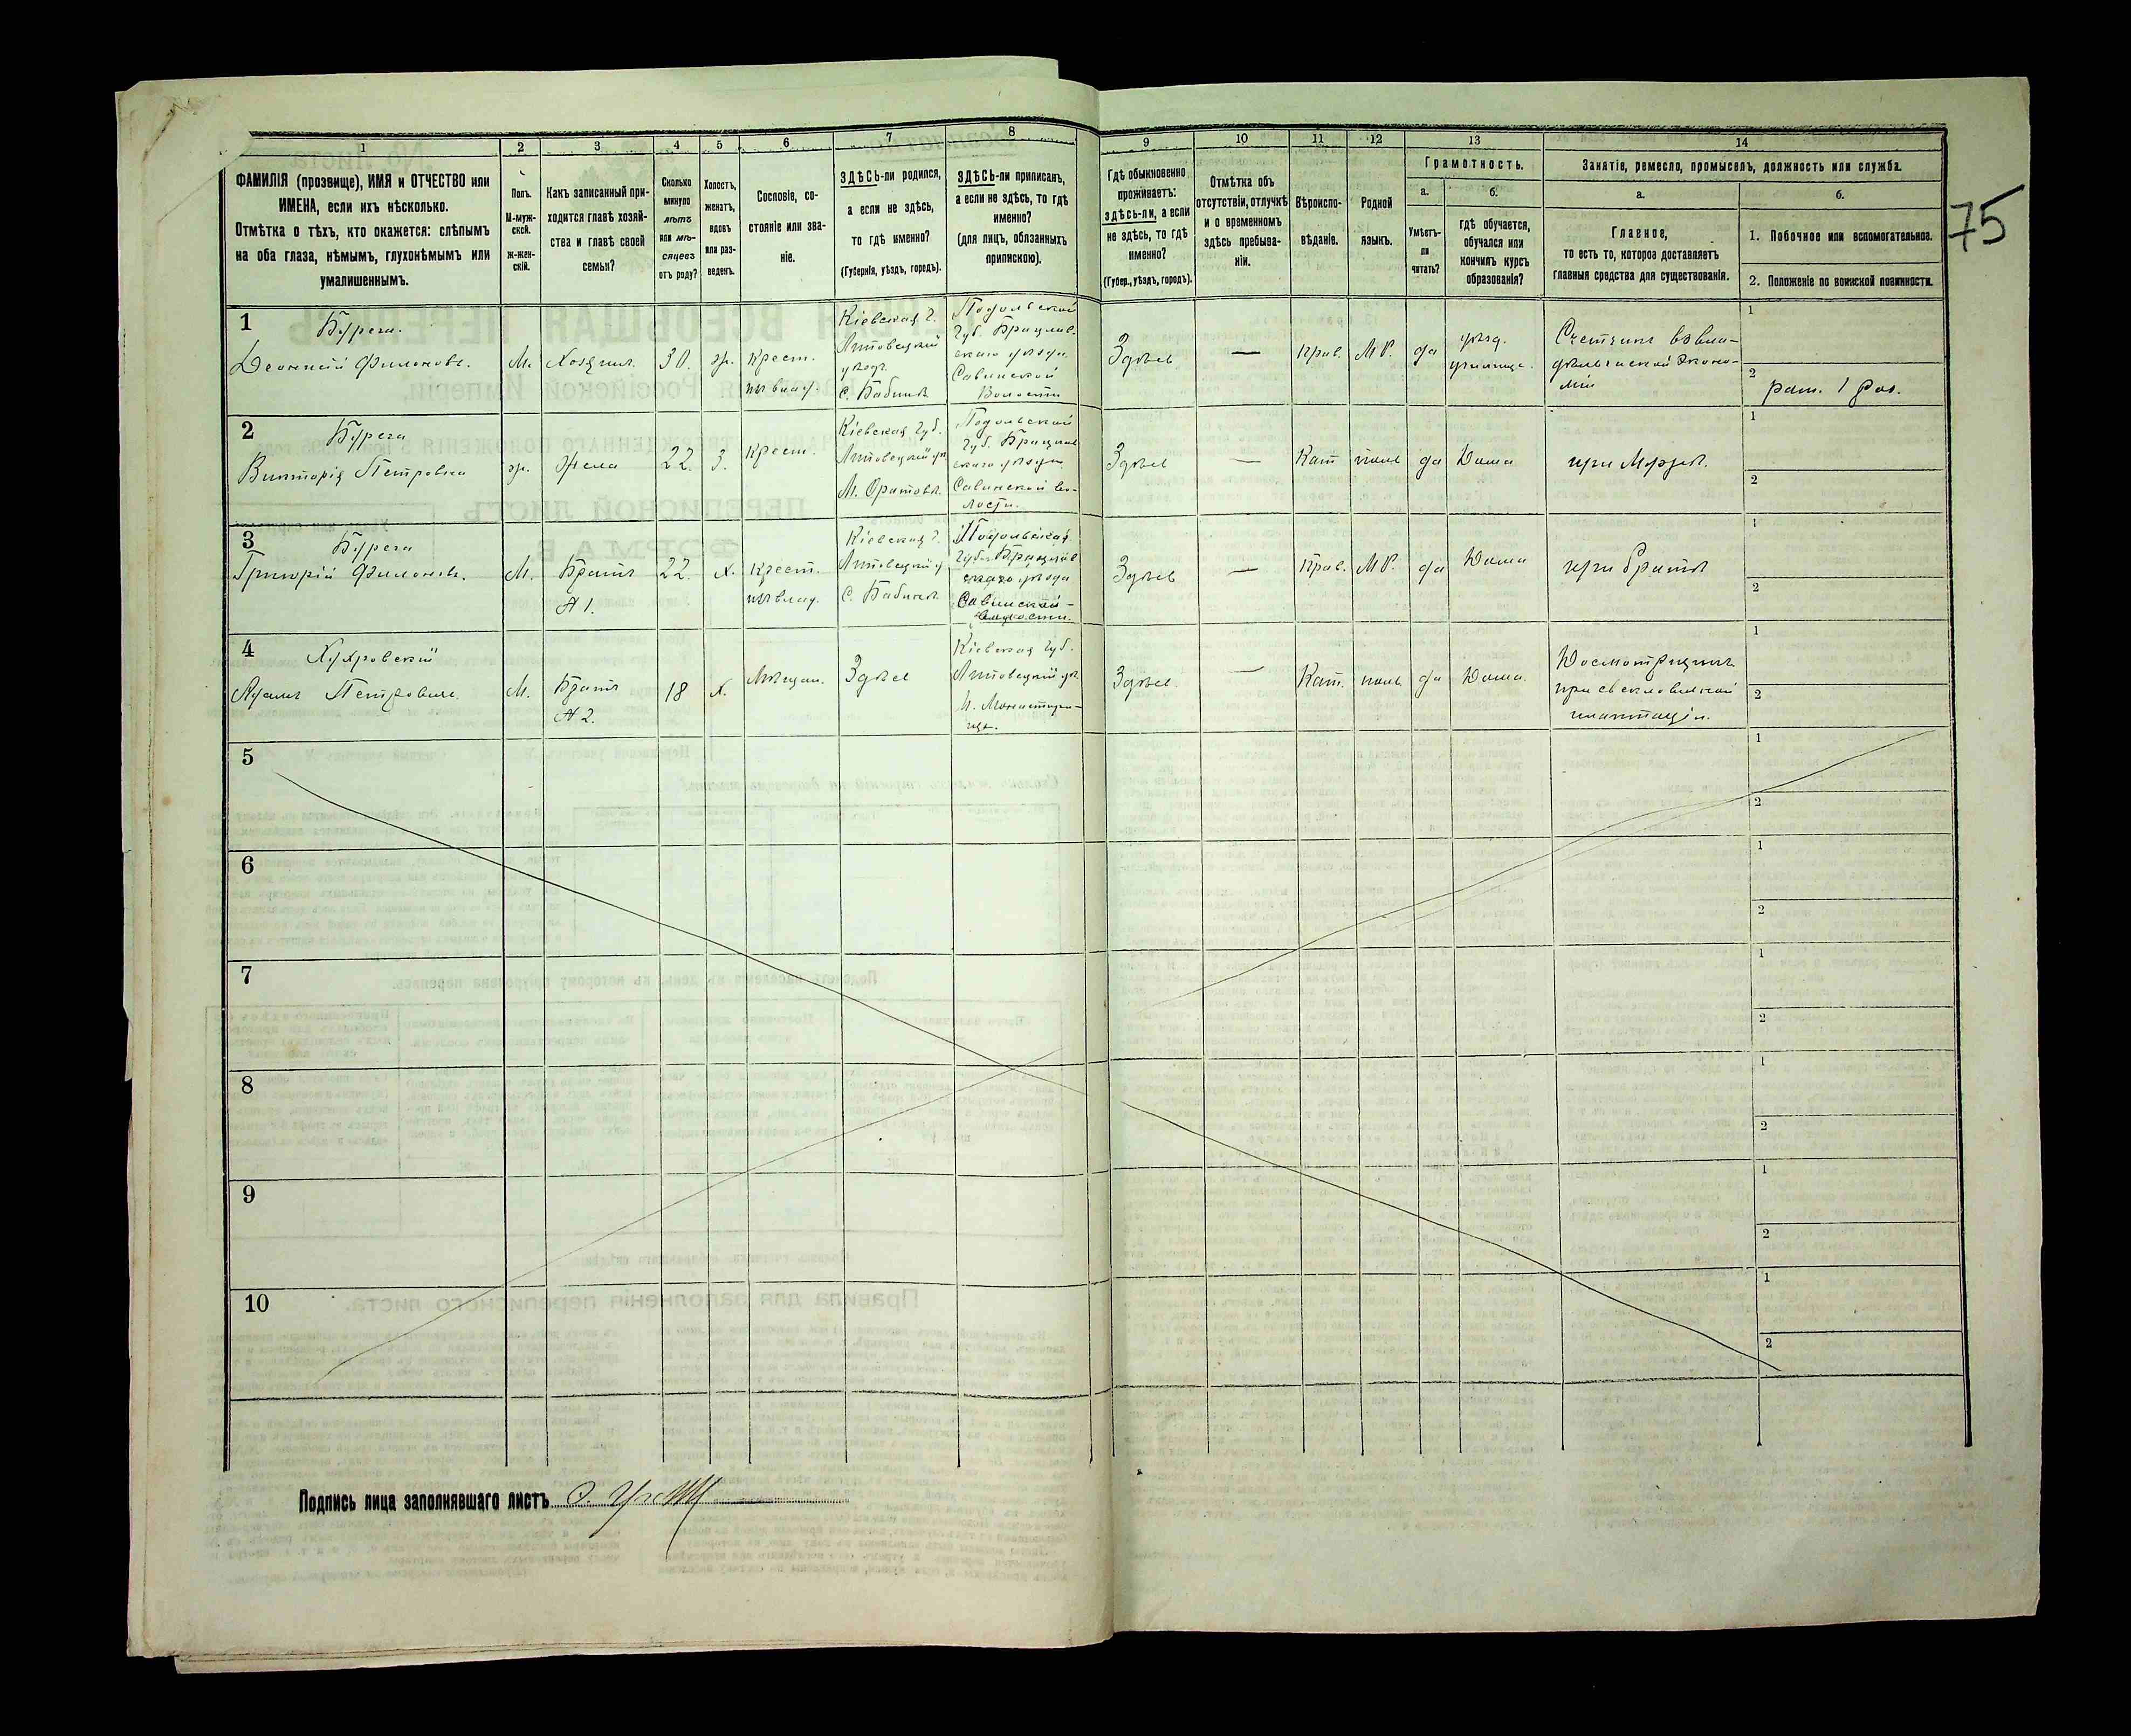 1 2 3 4 5 6 7 8 9 10 11 12 13 14
ФАМИЛІЯ (прозвище), ИМЯ и ОТЧЕСТВО или
ИМЕНА, если ихъ нѣсколько.
Отмѣтка о тѣхъ, кто окажется: слѣпымъ
на оба глаза, нѣмымъ, глухонѣмымъ или
умалишеннымъ.
Полъ.
М-муж-
ской.
ж-жен-
скій.
Какъ записанный при-
ходится главѣ хозяй-
ства и главѣ своей
семьи?
Сколько
минуло
лѣтъ
или мѣ-
сяцевъ
отъ роду?
Холостъ,
женатъ,
вдовъ
или раз-
веденъ.
Сословіе, со-
стояніе или зва-
ніе.
ЗДѢСЬ-ли родился,
а если не здѣсь,
то гдѣ именно?
(Губернія, уѣздъ, городъ).
ЗДѢСЬ-ли приписанъ,
а если не здѣсь, то гдѣ
именно?
(для лицъ, обязанныхъ
припискою).
Гдѣ обыкновенно
проживаетъ:
здѣсь-ли, а если
не здѣсь, то гдѣ
именно?
(Губер., уѣздъ, городъ).
Отмѣтка объ
отсутствіи, отлучкѣ
и о временномъ
здѣсь пребыва-
ніи.
Вѣроиспо-
вѣданіе.
Родной
языкъ.
Грамотность.
а.
Умѣетъ-
ли
читать?
б.
гдѣ обучается,
обучался или
кончилъ курсъ
образованія?
Занятіе, ремесло, промыселъ, должность или служба.
а.
Главное,
то есть то, которое доставляетъ
главныя средства для существованія.
б.
1. Побочное или вспомогательное.
2. Положеніе по воинской повинности.
75
1
Бурега.
Леонтій Филоновъ.
М.
Хозяинъ.
30.
ж.
Крест.
изъ влад.
Кіевская г.
Липовецкій
уѣздъ
С. Бабинъ
Подольской
губ. Брацлав-
скаго уѣзда
Савинской
Волости
Здѣсь
—
Прав.
М.Р.
да
уѣзд.
училище.
Счетчикъ во вла-
дѣльческой эконо-
міи
1
2
рат. 1 раз.
2
Бурега
Викторія Петровна
ж.
Жена
22.
З.
Крест.
Кіевская губ.
Липовецкій у.
М. Оратовъ.
Подольской
губ. Брацлав
скаго уѣзда
Савинской во-
лости.
Здѣсь
—
Кат
поль
да
Дома
при Мужѣ.
1
2
3
Бурега
Григорій Филоновъ.
М.
Братъ
№ 1.
22.
х.
Крест.
изъ влад.
Кіевская г.
Липовецкій у
С. Бабинъ
Подольская
губ. Брацлав
скаго уѣзда
Савинской
волости.
Здѣсь
—
Прав.
М.Р.
да
Дома
при братѣ
1
2
4
Петровичъ
М.
Братъ
№ 2.
18
х.
Мѣщан.
Здѣсь
Кіевская губ.
Липовецкій уѣ.
М. Монастыри-
ще.
Здѣсь.
—
Кат.
поль
да
Дома.
Досмотрщикъ
при свекловичной
плантаціи.
1
2
5
1
2
6
1
2
7
1
2
8
1
2
9
1
2
10
1
2
Подпись лица заполнявшаго листъ